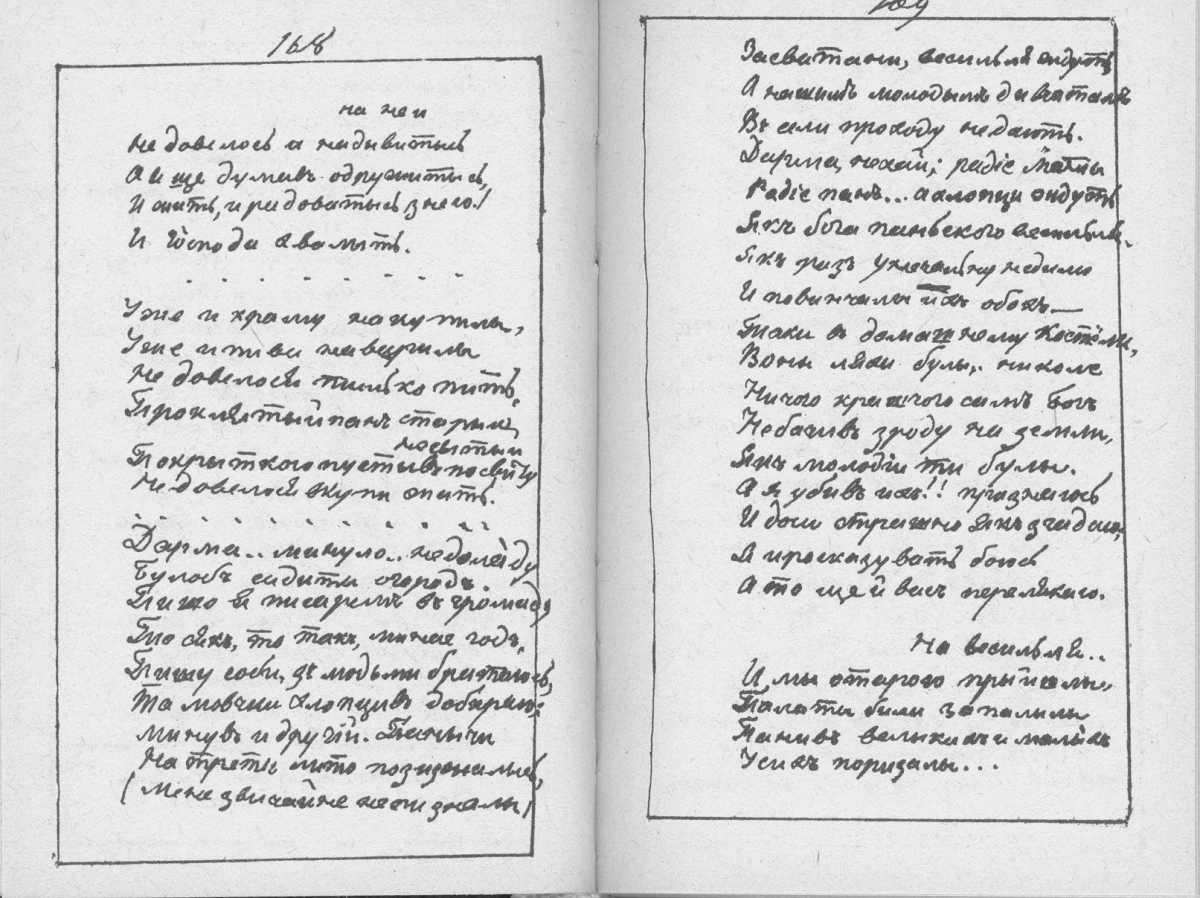 168
на неи
Не довелось и надывитысь
А и ще думавъ одружитысь,
И жить, и радоватысь з нею!
И Господа хвалить.
. . . . . . . .
Уже и краму накупылы,
Уже и пива наварилы
Не довелося тилько пить,
Проклятый панъ старый
несытый
Покрыткою пустывъ по свиту
Не довелося вкупи жить.
. . . . . . . . . .
Дарма.. минуло.. не до ладу
Булобъ садити огородъ.
Пишо я писаремъ въ громаду
То сякъ, то такъ, минае годъ,
Пишу соби, зъ людьми братаюсь,
Та мовчки хлопцивъ добираю:
Минувъ и другій. Панычи
На трете лито позизжалысь,
(Мене звичайне не пизналы)
169
Засватани, весильля ждуть
А нашимъ молодымъ дивчатамъ
Въ сели проходу не дають.
Дарма, нехай; радіе мати
Радіе панъ... а хлопци ждуть
Якъ бога паньского весильля.
Якъ разъ у клечальну недилю
И повинчалы ихъ обохъ—
Таки въ домашнему костёли,
Воны ляхи булы. николе
Ничого кращого самъ богъ
Не бачивъ зроду на земли,
Якъ молодіи ти булы.
А я убивъ ихъ!! признаюсь
И доси страшно якъ згадаю,
Я и росказувать боюсь
А то ще й васъ перелякаю.
На весильля..
И мы отарою прыйшлы,
Палаты били запалилы
Панивъ великихъ и малыхъ
Усихъ поризалы...